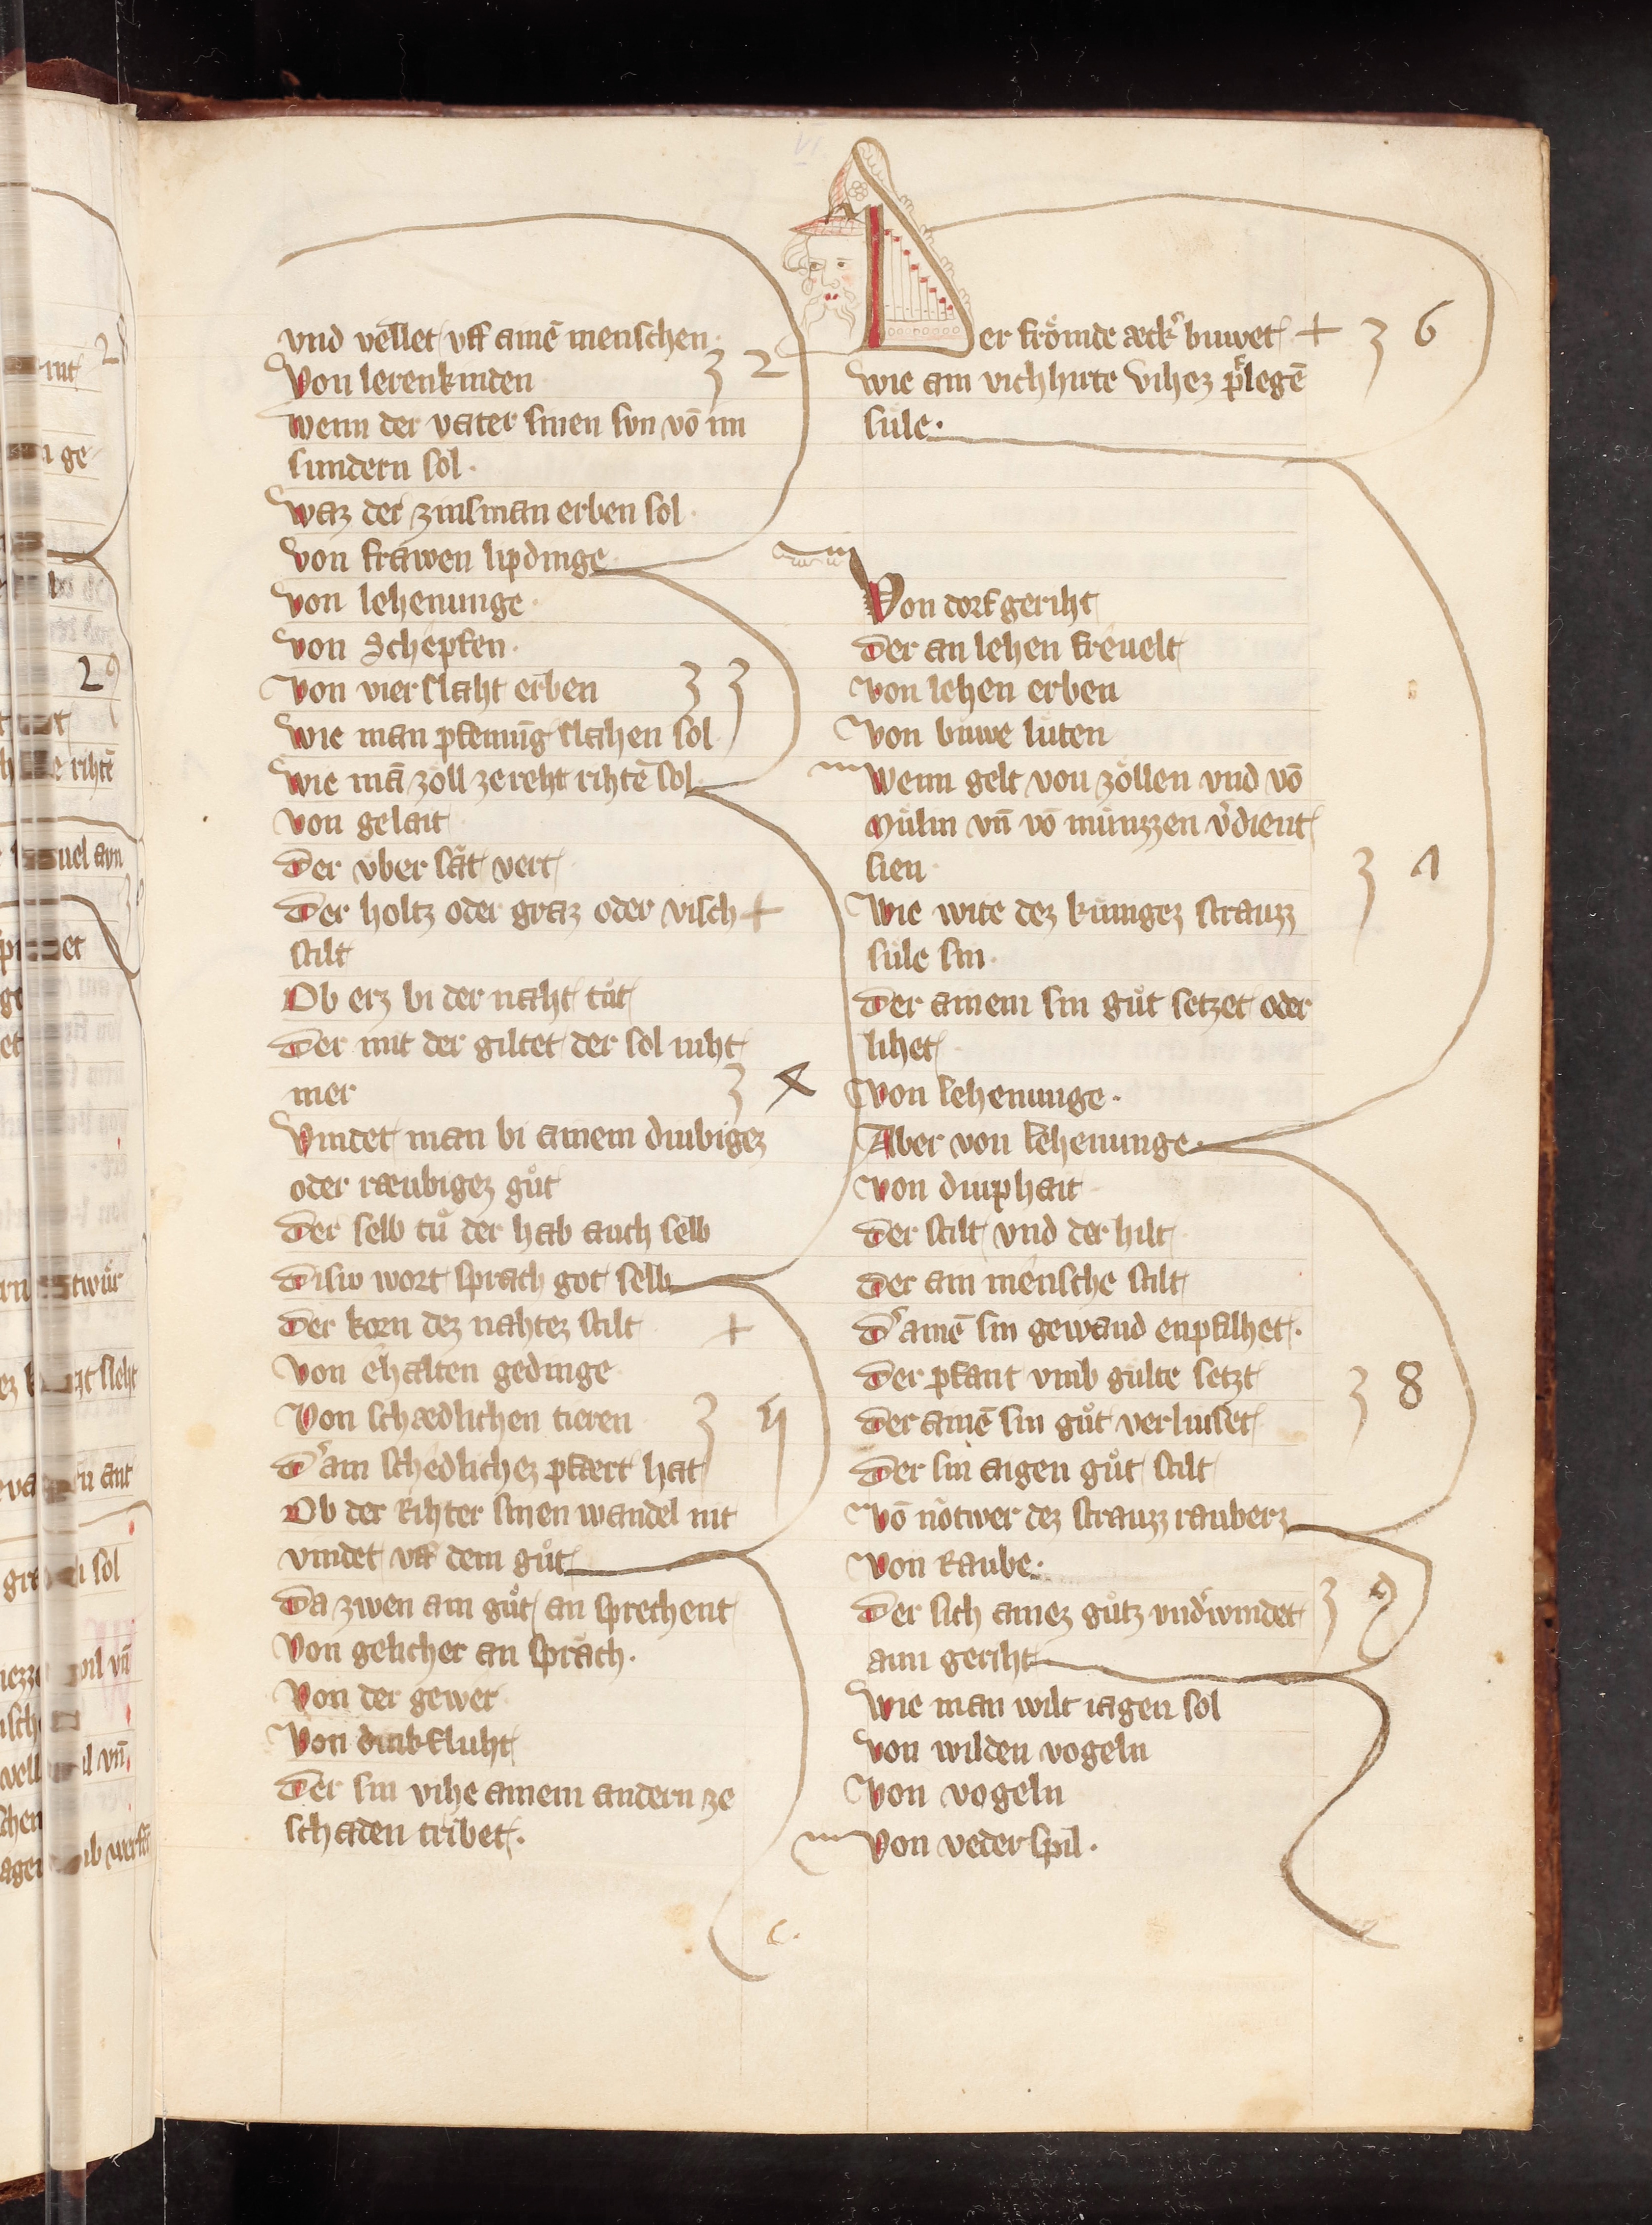 vnd vellet vff ainē menschen.
Von lerenkinden 32
Wenn der vater sinen svn vō im
sundern sol.
Waz der zinsman erben sol
Von frawen lipdinge
Von lehenunge.
Von Schepfen.
Von vierslaht erben 33
Wie man pfenning slahen sol
Wie mā zoll ze reht rihtē sol
Von gelait
Der vber sāt vert
Der holtz oder graz oder visch +
stilt
Ob erz bi der naht tůt
Der mit der giltet der sol niht
mer 34
Vindet man bi ainem diubigez
oder ræubigez gůt
Der selb tů der hab auch selb
Disiv wort sprach got selb
Der korn dez nahtez stilt +
Von ehalten gedinge
Von schædlichen tieren 35
D' ain schedlichez pfaert hat
Ob der Rihter sinen wandel nit
vindet vff dem gůt
Da zwen ain gůt an sprechent
Von gelicher an sprach.
Von der gewer
Von diubfluht
Der sin vihe ainem andern ze
schaden tribet.
Der frömde æck' buwet + 36
wie ain vichhirte vihez pflegē
süle.
Von dorfgeriht
Der an lehen freuelt
Von lehen erben
Von buwe lüten
Wenn gelt von zöllen vnd vō
Mülin vn̄ vō münzzen v'dient
sien 37
Wie wite dez küngez strauzz
süle sin.
Der ainem sin gůt setzet oder
lihet
Von lehenunge.
Aber von lehenunge.
Von diuphait
Der stilt vnd der hilt
Der ain mensche stilt
D' ainē sin gewand enpfilhet.
Der pfant vmb gülte setzt 38
Der ainē sin gůt verliuset
Der sin aigen gůt stilt
Vō notwer dez strauzz rauberz
Von Raube.
Der sich ainez gůtz vnd'windet 39
ann geriht
Wie man wilt iagen sol
Von wilden vogeln
Von vogeln
Von vederspil.